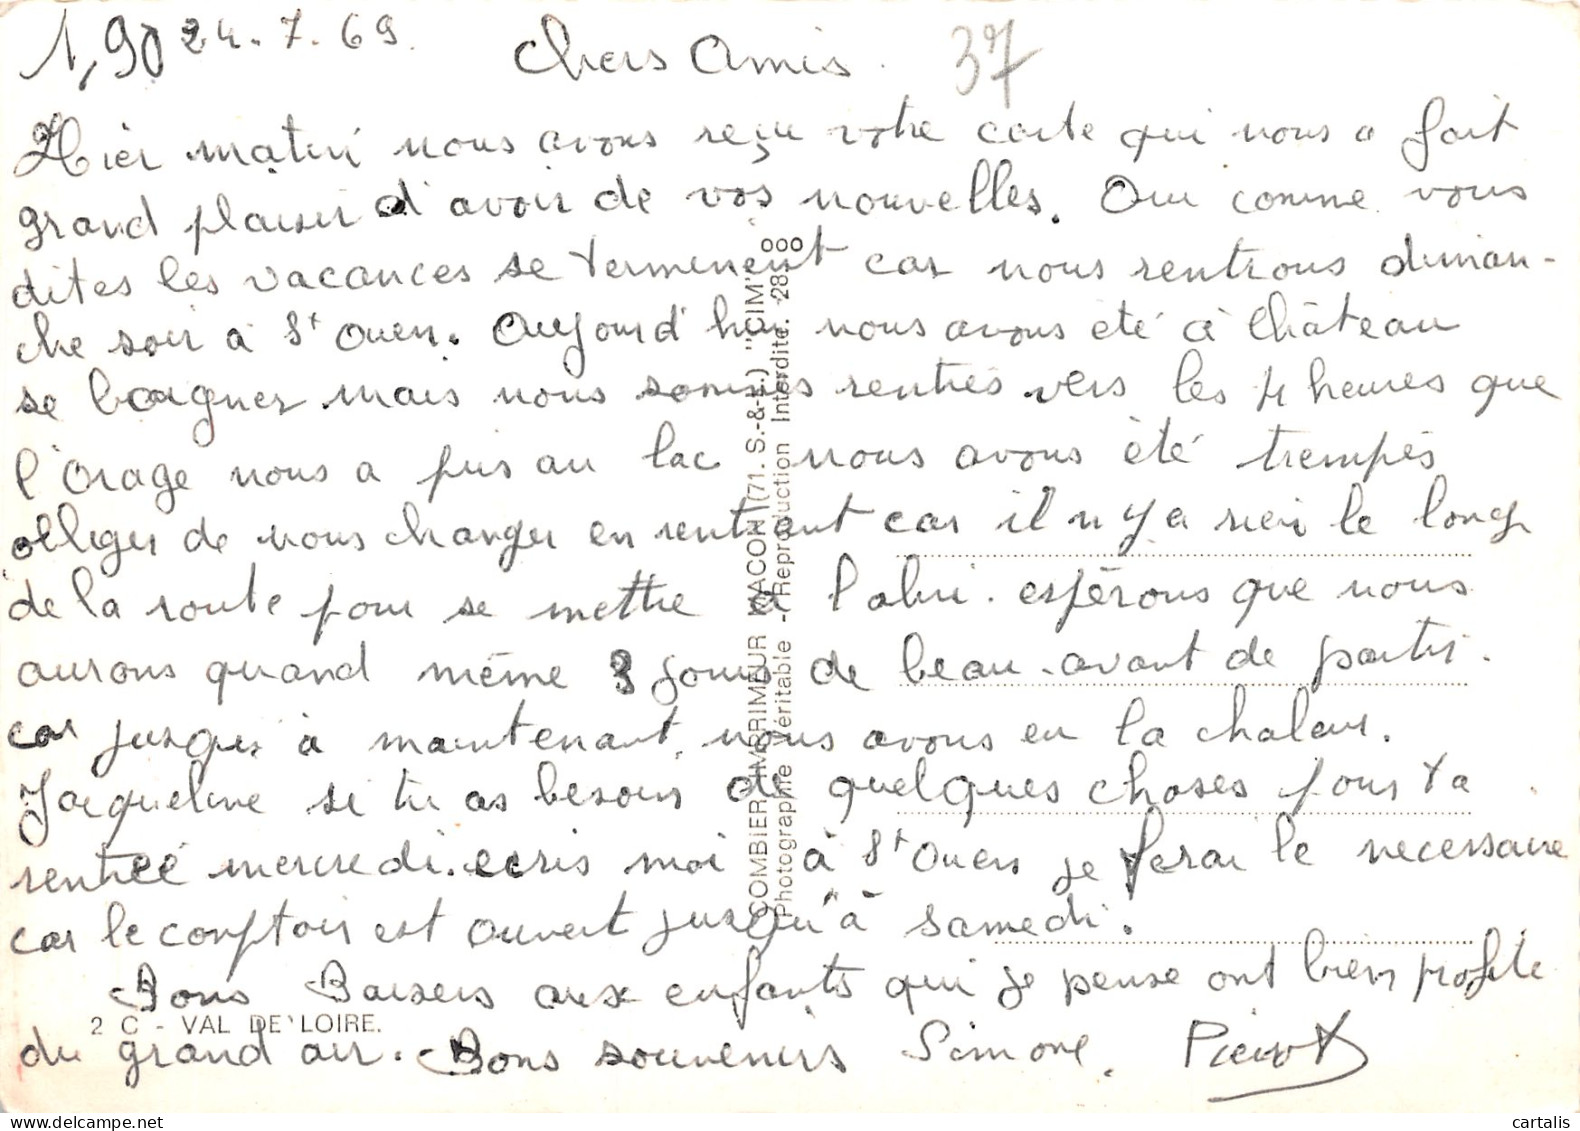 1,90 24.7.69. Chers Amis. 37
Hier matin nous avons reçu votre carte qui nous a fait
grand plaisir d'avoir de vos nouvelles. Oui comme vous
dites les vacances se terminent car nous rentrons diman-
che soir à St Ouen. Aujourd'hui nous avons été à Château
se baigner mais nous sommes rentrés vers les 4 heures que
l'orage nous a pris au lac nous avons été trempés
obliger de nous changer en rentrant car il n'y a rien le long
de la route pour se mettre à l'abri. espérons que nous
aurons quand même 3 jours de beau avant de partir.
car jusque à maintenant nous avons eu la chaleur.
Jacqueline si tu as besoin de quelques choses pour ta
rentrée mercredi. ecris moi à St Ouen je ferai le necessaire
car le comptoir est ouvert jusqu'à samedi.
Bons Baisers aux enfants qui je pense ont bien profité
du grand air. Bons souvenirs Simone. Pierrot
2 C - VAL DE LOIRE.
COMBIER IMPRIMEUR MACON (71. S.-&-L.) "CIM"
Photographie Véritable - Reproduction Interdite.